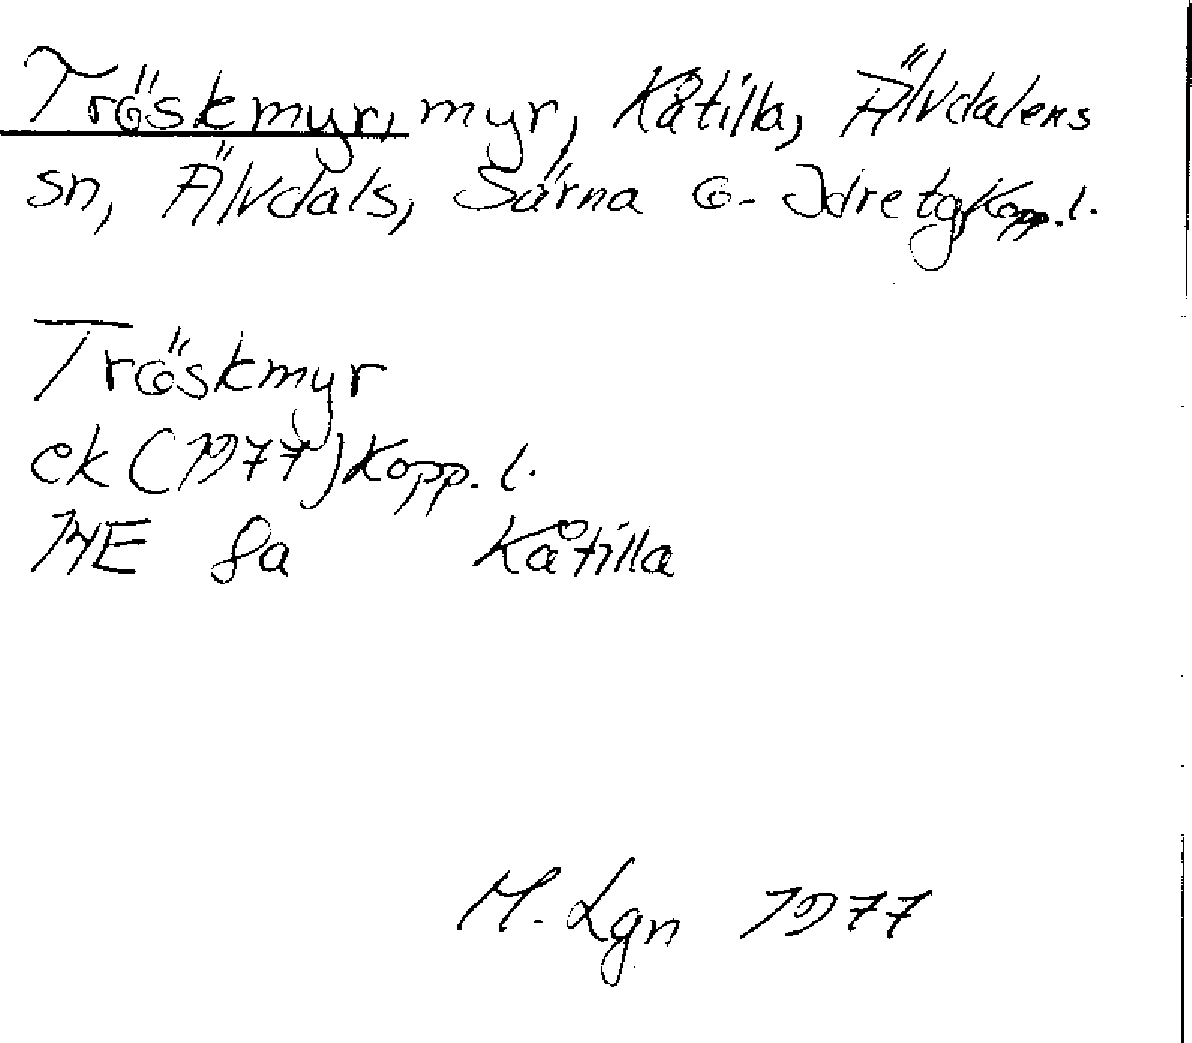 Tröskmyr, myr, Kåtilla, Älvdalens
sn, Älvdals, Särna o. Idre tg, Kopp. l.
Tröskmyr
ek (1977) Kopp. l.
14E 8a Kåtilla
M. Lgn 1977